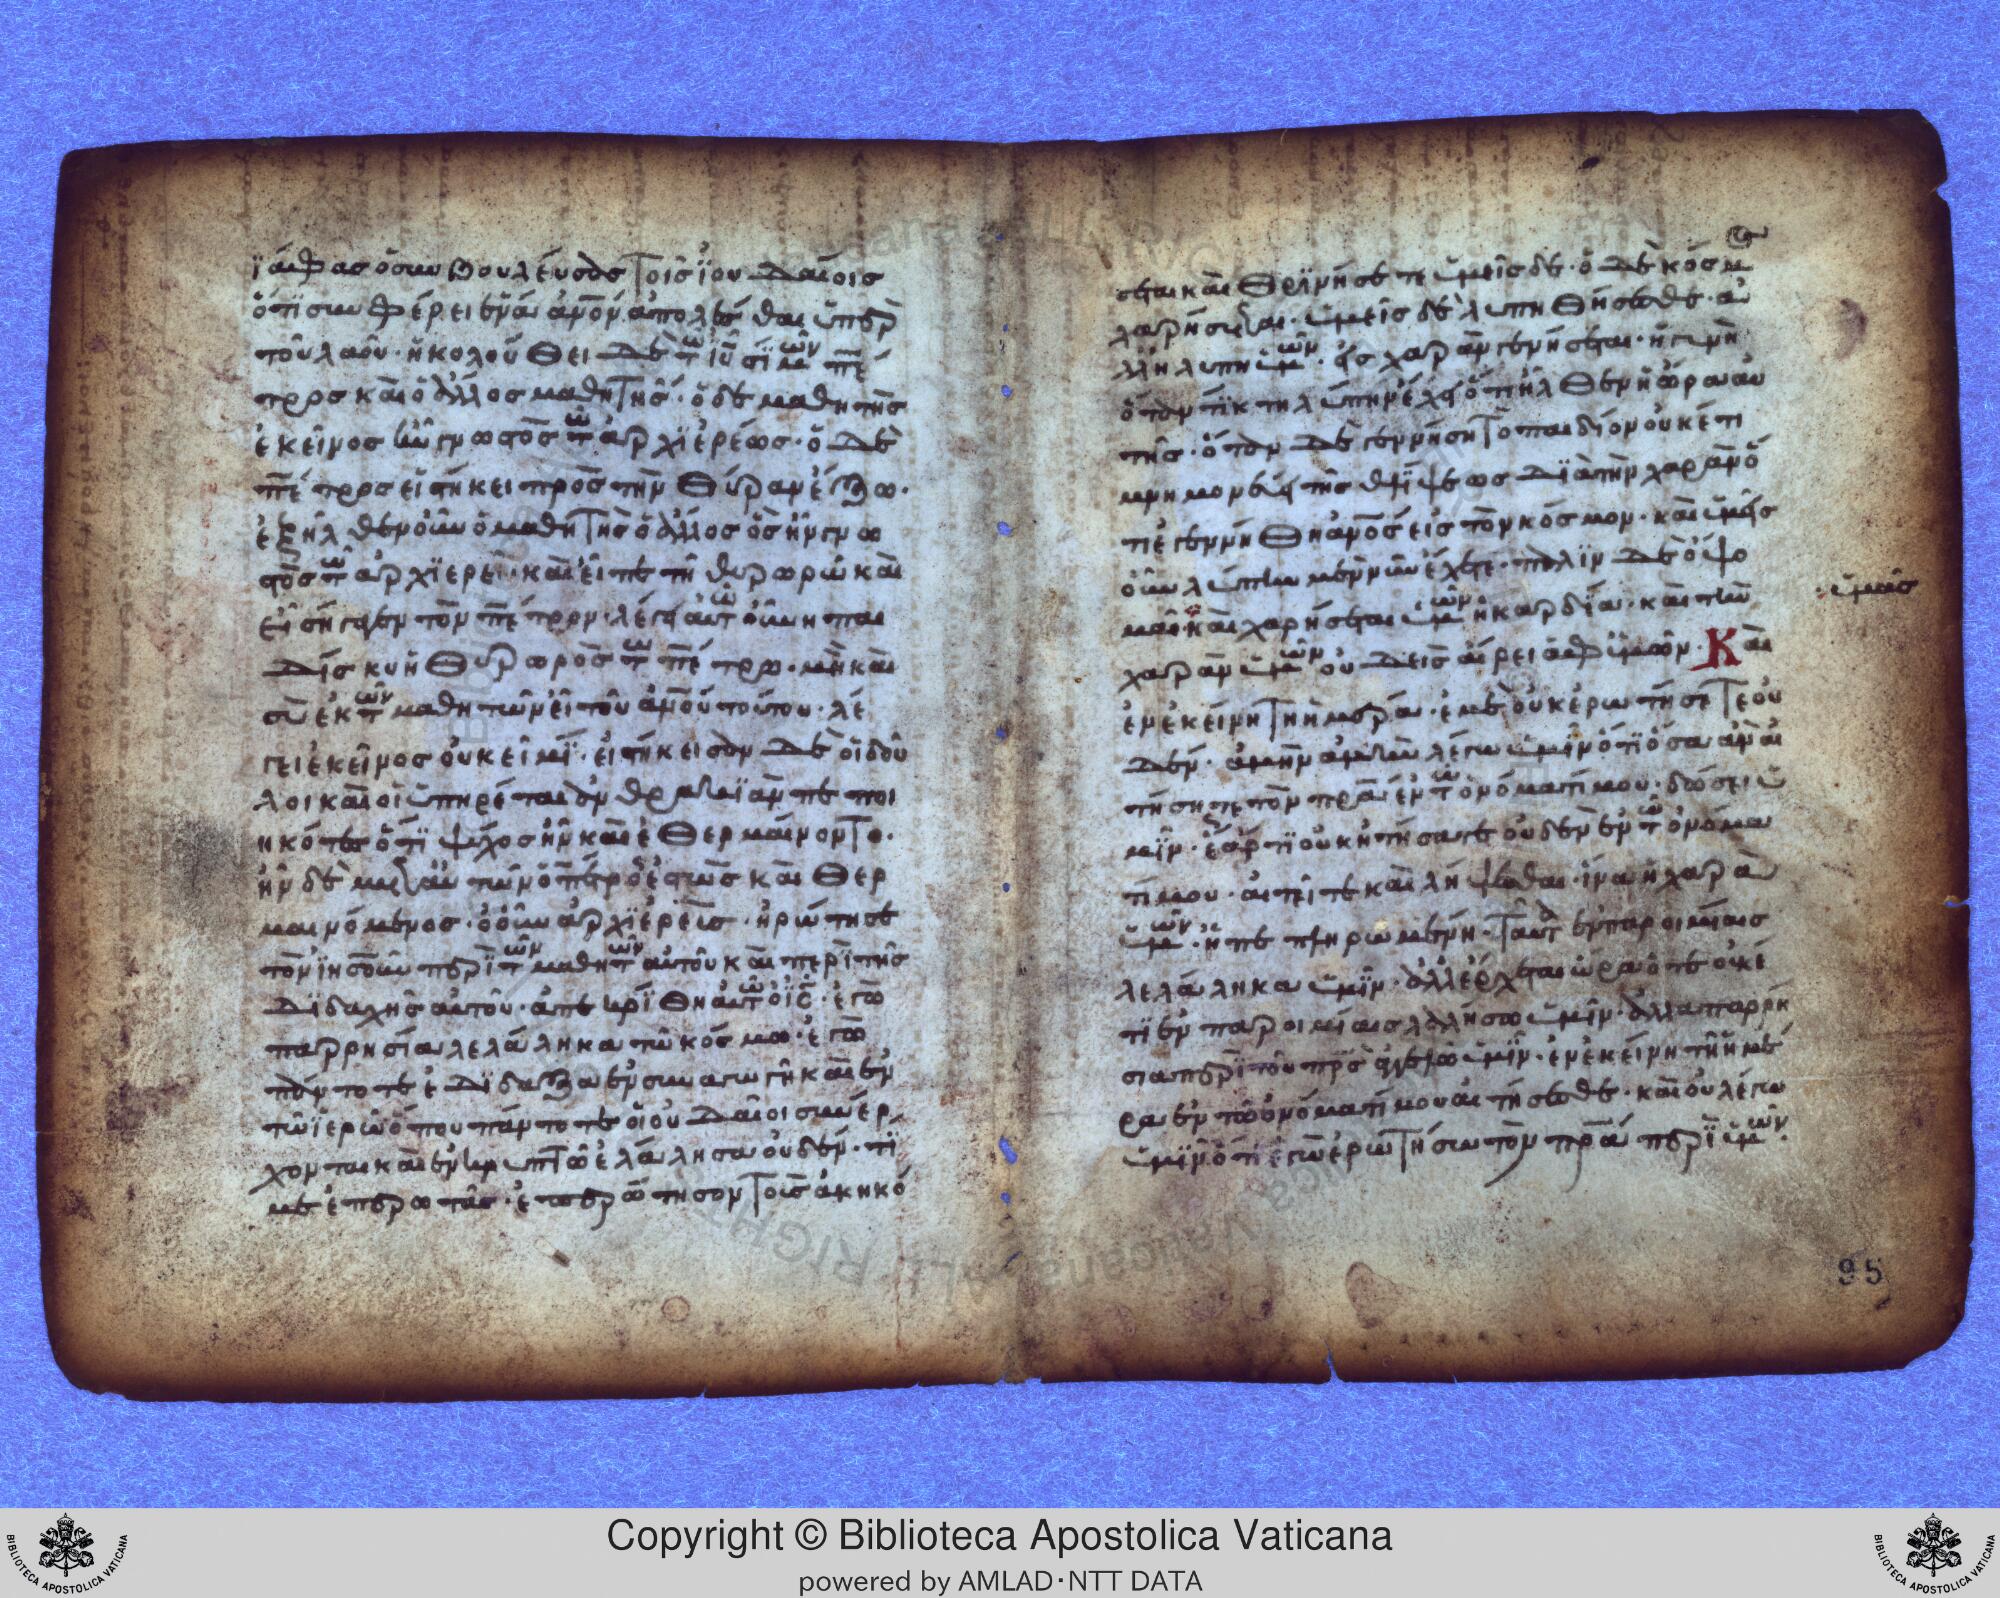 ϊάφας ὁ συμβουλεύσας τοῖς ϊουδαίοις
ὅτι συμφέρει ἕνα ἄνον ἀπολέσθαι ὑπὲρ
τοῦ λαοῦ· ἠκολούθει δὲ τῶ ιῦ σίμων πέ
τρος καὶ ὁ ἄλλος μαθητής· ὁ δὲ μαθητὴς
ἐκεῖνος ἦν γνωστὸς τῶ ἀρχϊερέως· ὁ δὲ
πέτρος εἱστήκει πρὸς τὴν θύραν ἔξω·
ἐξῆλθεν οὖν ὁ μαθητὴς ὁ ἄλλος ὃς ἦν γνω
στὸς τῶ ἀρχϊερεῖ· καὶ εἶπε τῆ θυρωρῶ καὶ
εἰσήγαγεν τὸν πέτρον· λέγει αὐτῶ οὖν ἡ παι
δίσκη ἡ θυρωρὸς τῶ πέτρω· μὴ καὶ
σὺ ἐκ τῶν μαθητῶν εἶ τοῦ ἀνου τούτου· λέ
γει ἐκεῖνος οὐκ εἰμί· εἱστήκεισαν δὲ οἱ δοῦ
λοι καὶ οἱ ὑπηρέται ἀνθρακιὰν πεποι
ηκότες ὅτι ψύχος ἦν καὶ ἐθερμαίνοντο·
ἦν δὲ μετ αὐτῶν ὁ πέτρος ἑστὼς καὶ θερ
μαινόμενος· ὁ οὖν ἀρχϊερεὺς· ἠρώτησε
τὸν ϊησοῦν περὶ τῶν μαθητῶν αὐτοῦ καὶ περὶ τῆς
διδαχῆς αὐτοῦ· ἀπεκρίθη αὐτῶ ὁ ις· ἐγὼ
παρρησία λελάληκα τῶ κόσμω· ἐγὼ
πάντοτε ἐδίδαξα ἐν συναγωγῆ καὶ ἐν
τῶ ϊερῶ ὅπου πάντοτε οἱ ϊουδαῖοι συνέρ
χονται καὶ ἐν κρυπτῶ ἐλάλησα οὐδέν· τί
με ἐπερωτᾶς· ἐπερώτησον τοὺς ἀκηκό
σεται καὶ θρϊνήσετε ὑμεῖς δὲ· ὁ δὲ κόσμ
χαρήσεται· ὑμεῖς δὲ λυπηθήσεσθε· ἀ
λλ ἡ λύπη ὑμῶν· εἰς χαρὰν γενήσεται· ἡ γυνὴ
ὅταν τίκτη λύπην ἔχει ὅτι ἦλθεν ἡ ὥρα αὐ
τῆς· ὅταν δὲ γεννήση τὸ παιδίον οὐκέτι
μνημονεύει τῆς θλίψεως διὰ τὴν χαρὰν ὅ
τι ἐγεννήθη ἄνος εἰς τὸν κόσμον· καὶ ὑμεῖς
οὖν λύπην μὲν νῦν ἔχετε· πάλϊν δὲ ὄψο
μαι· καὶ χαρήσεται ὑμῶν ἡ καρδία· καὶ τὴν
· ὑμᾶς
χαρὰν ὑμῶν οὐδεὶς αἴρει ἀφ ὑμῶν· Καὶ
ἐν ἐκείνη τῆ ἡμέρα· ἐμὲ οὐκ ἐρωτήσετε οὐ
δέν· ἀμὴν ἀμὴν λέγω ὑμῖν ὅτι ὅσα ἂν αἰ
τήσητε τὸν πρα ἐν τῶ ὀνόματί μου· δώσει ὑ
μῖν· ἕως ἄρτι οὐκ ἠτήσατε οὐδὲν ἐν τῶ ὀνόμα
τί μου· αἰτεῖτε καὶ λήψεσθαι· ἵνα ἡ χαρὰ
ὑμῶν· ἦ πεπληρωμένη· Ταῦτα ἐν παροιμίαις
λελάληκα ὑμῖν· ἀλλ ἔρχεται ὥρα ὅτε οὐκέ
τι ἐν παροιμίαις λαλήσω ὑμῖν· ἀλλὰ παρρη
σία περὶ τοῦ πρς ἀναγγελῶ ὑμῖν· ἐν ἐκείνη τῆ ἡμέ
ρα ἐν τῶ ὀνόματί μου αἰτήσεσθε· καὶ οὐ λέγω
ὑμῖν ὅτι ἐγὼ ἐρωτήσω τὸν πρα περὶ ὑμῶν·
95
Copyright © Biblioteca Apostolica Vaticana
powered by AMLAD·NTT DATA